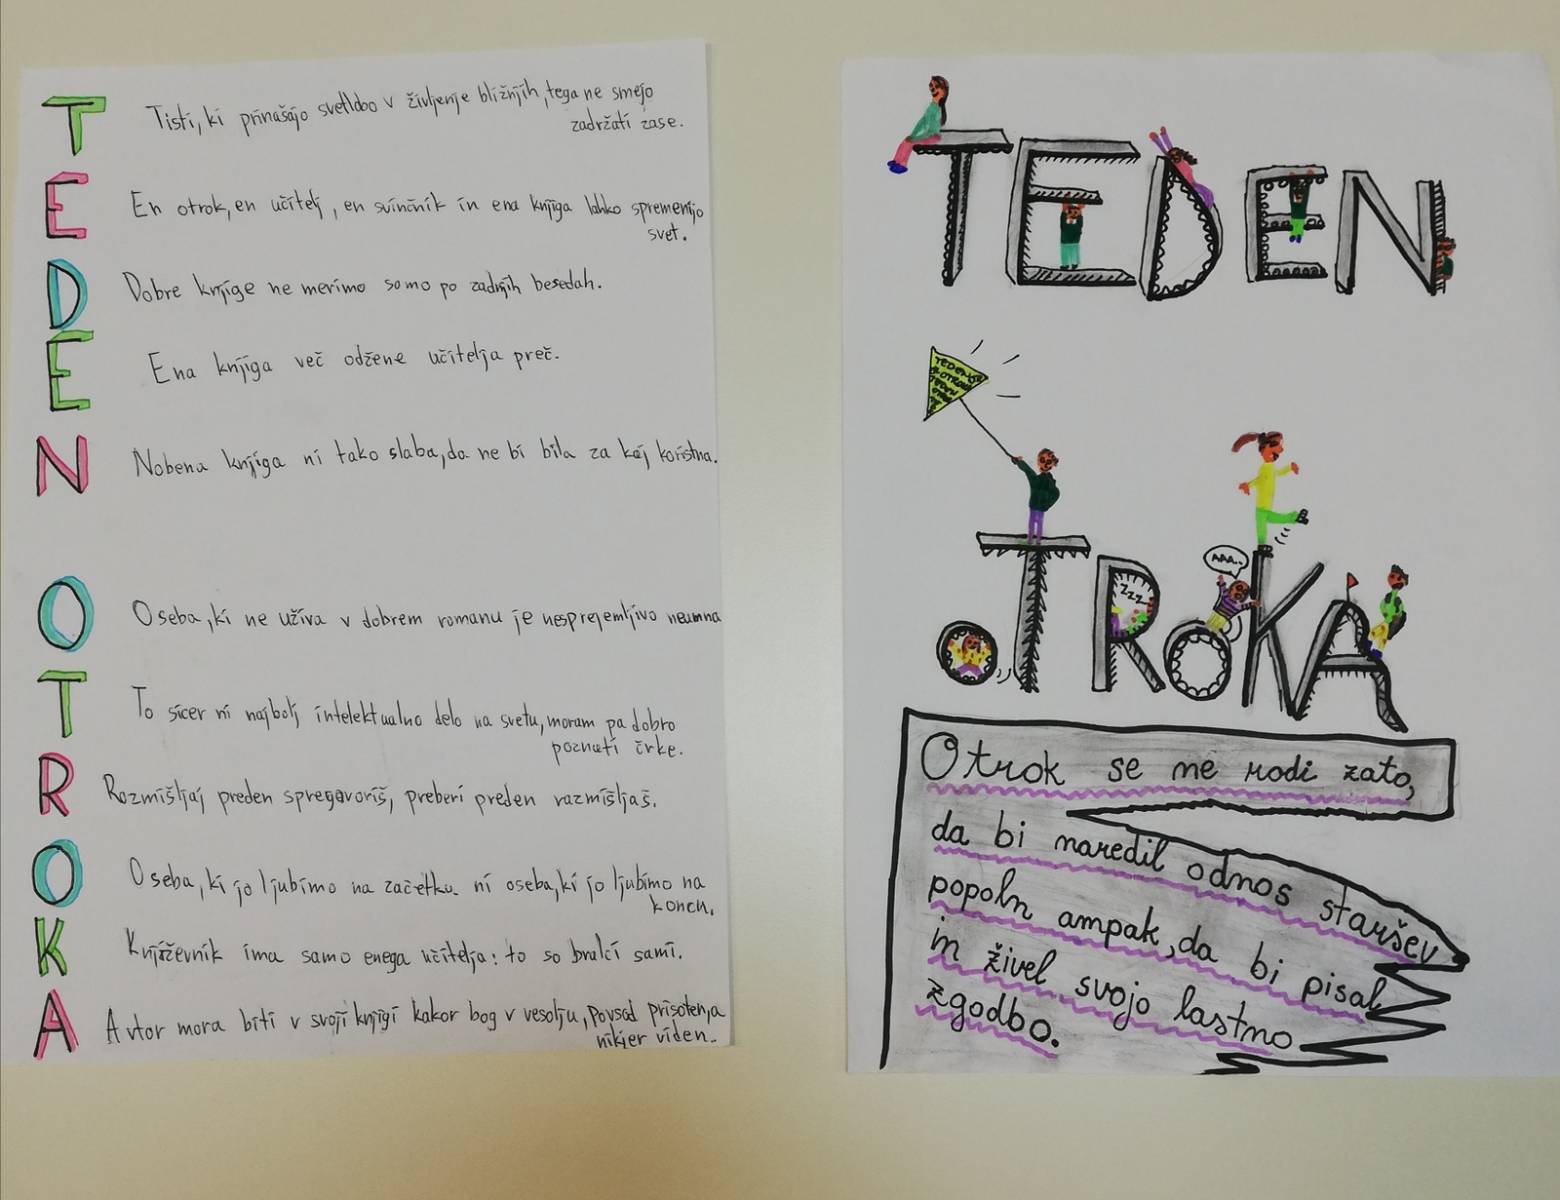 T
Tisti, ki prinašajo svetlobo v življenje bližnjih, tega ne smejo
zadržati zase.
E
En otrok, en učitelj, en svinčnik in ena knjiga lahko spremenijo
svet.
D
Dobre knjige ne merimo samo po zadnjih besedah.
E
Ena knjiga več odžene učitelja preč.
N
Nobena knjiga ni tako slaba, da ne bi bila za kaj koristna.
O
Oseba, ki ne uživa v dobrem romanu je nesprejemljivo neumna
T
To sicer ni najbolj intelektualno delo na svetu, moram pa dobro
poznati črke.
R
Razmišljaj preden spregovoriš, preberi preden razmišljaš.
O
Oseba, ki jo ljubimo na začetku ni oseba, ki jo ljubimo na
koncu.
K
Književnik ima samo enega učitelja: to so bralci sami.
A
Avtor mora biti v svoji knjigi kakor bog v vesolju, povsod prisoten, a
nikjer viden.
TEDEN
OTROKA
ZZZ
AAA..
Otrok se ne rodi zato,
da bi naredil odnos staršev
popoln ampak, da bi pisal
in živel svojo lastno
zgodbo.